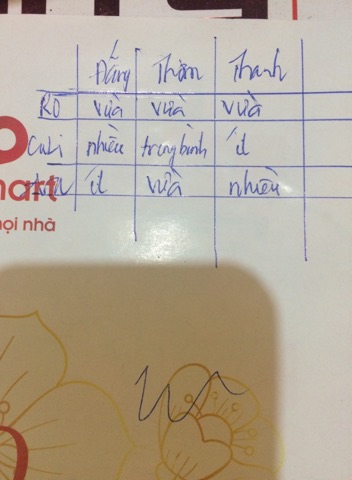 Đắng Thơm Thanh
RO vừa vừa vừa
Culi nhiều trung bình ít
ít vừa nhiều
mart
mọi nhà